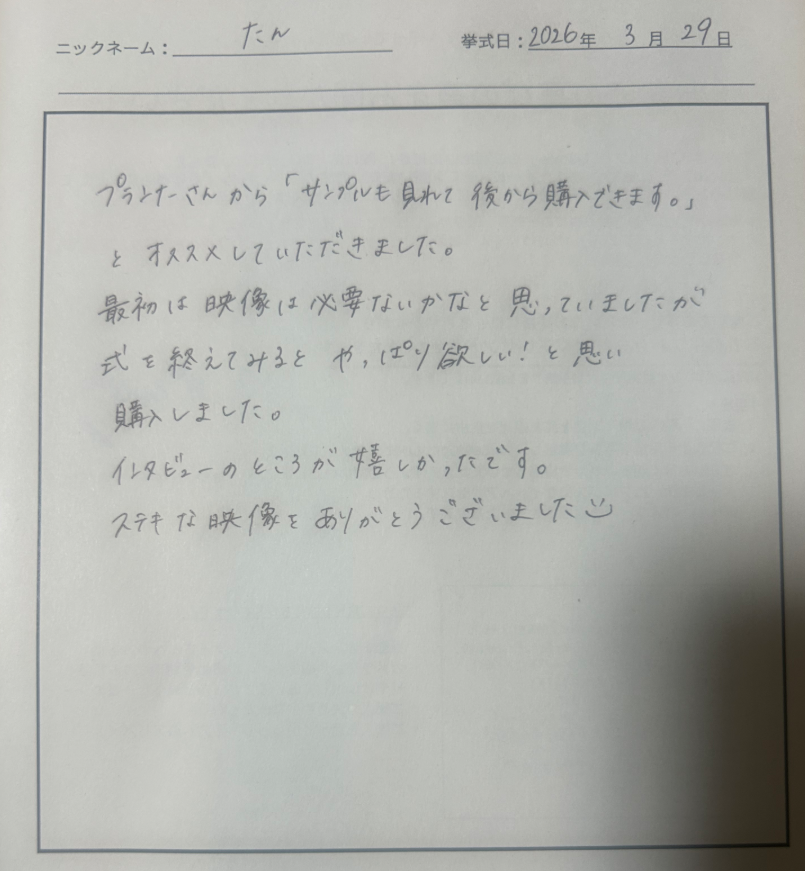 ニックネーム: たん 挙式日: 2026年 3月 29日
プランナーさんから「サンプルも見れて 後から購入できます。」
と オススメしていただきました。
最初は 映像は必要ないかなと 思っていましたが
式を終えてみると やっぱり欲しい!と思い
購入しました。
インタビューのところが 嬉しかったです。
ステキな映像を ありがとうございました